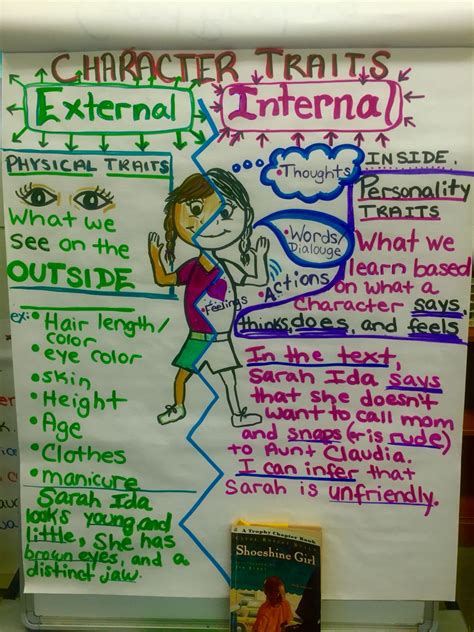 CHARACTER TRAITS
External
PHYSICAL TRAITS
What we
see on the
OUTSIDE
ex:
• Hair length/
color
• eye color
• skin
• Height
• Age
• Clothes
• manicure
Sarah Ida
looks young and
little, She has
brown eyes, and a
distinct jaw.
Internal
• Thoughts
• Words/
Dialouge
• Actions
• Feelings
INSIDE
Personality
TRAITS
What we
learn based
on what a
character says,
thinks, does, and feels
In the text,
Sarah Ida says
that she doesn't
want to call mom
and snaps (+ is rude)
to Aunt Claudia.
I can infer that
Sarah is unfriendly.
A Trophy Chapter Book
Shoeshine Girl